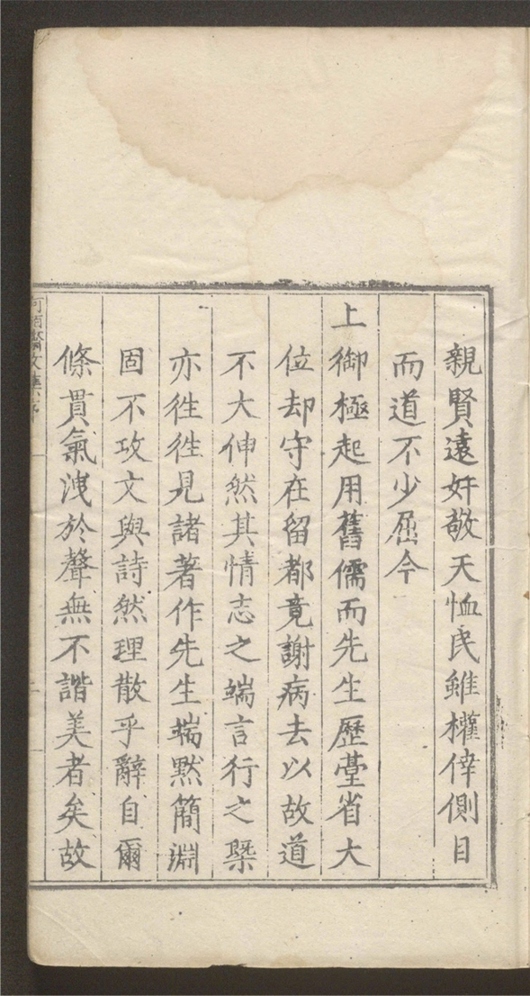 親賢遠奸敬天恤民雖權倖側目
而道不少屈今
上御極起用舊儒而先生歷臺省大
位却守在留都竟謝病去以故道
不大伸然其情志之端言行之槩
亦徃徃見諸著作先生端默簡淵
固不攻文與詩然理散乎辭自爾
條貫氣洩於聲無不諧美者矣故